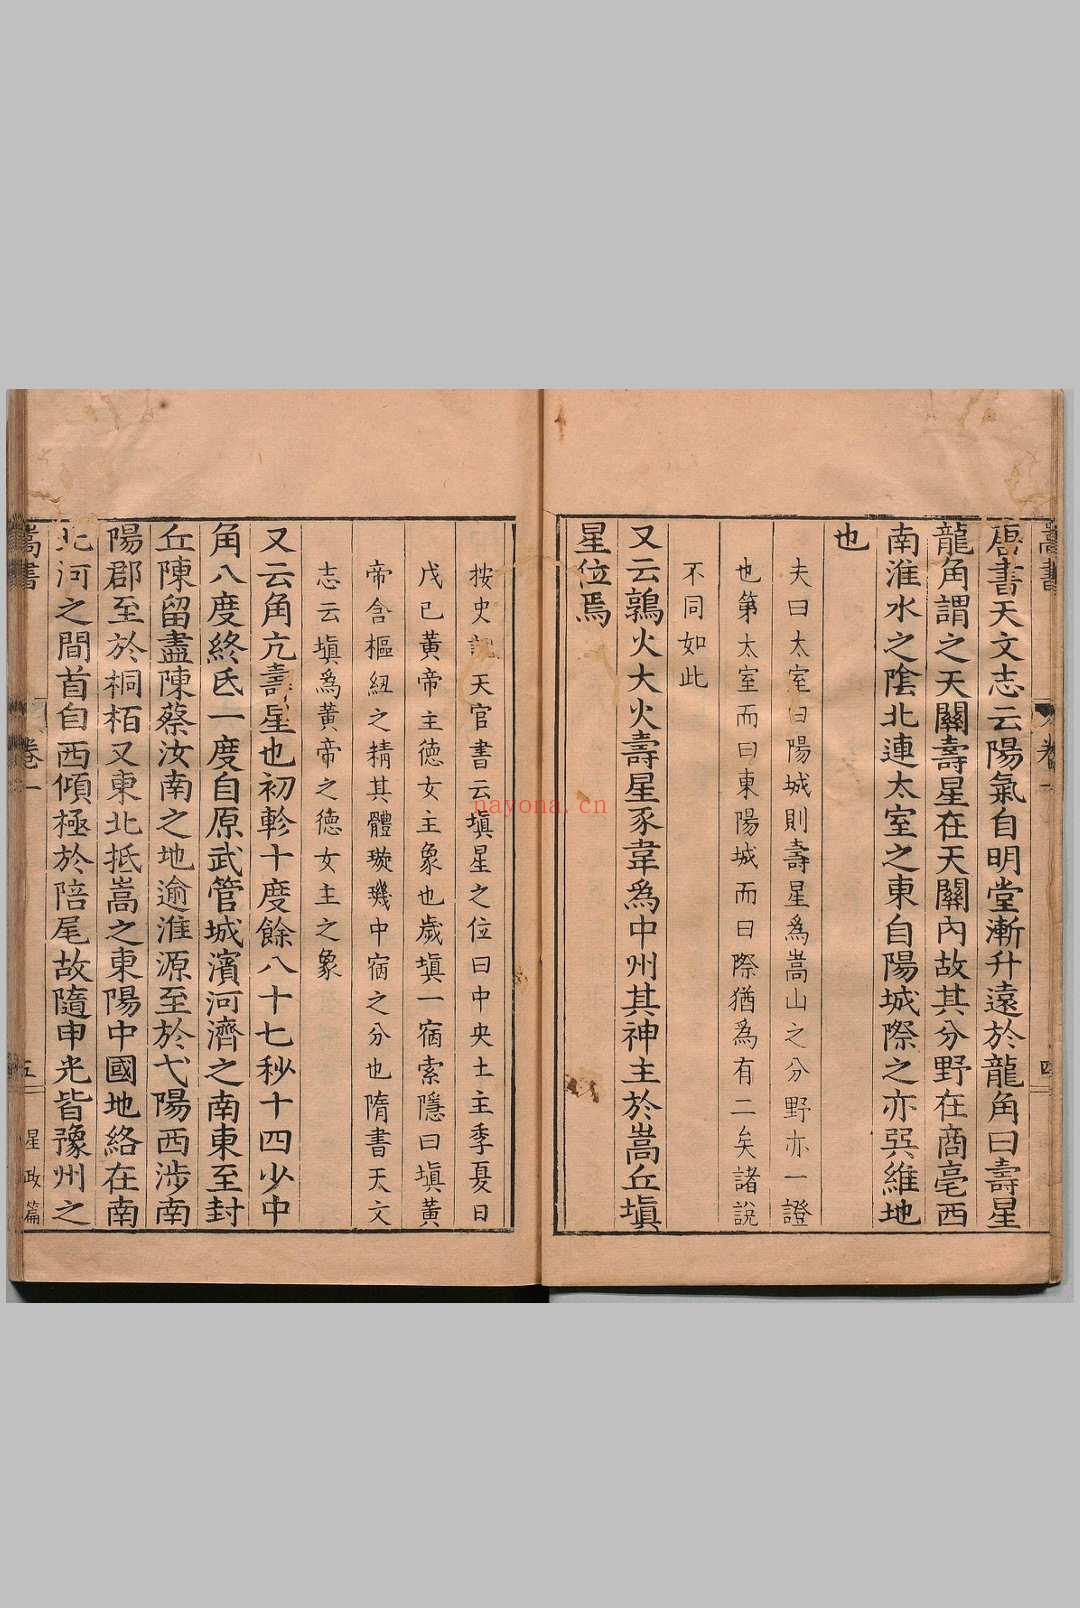 嵩書
卷一
四
唐書天文志云陽氣自明堂漸升遠於龍角曰壽星
龍角謂之天關壽星在天關內故其分野在商亳西
南淮水之陰北連太室之東自陽城際之亦巽維地
也
夫曰太室曰陽城則壽星為嵩山之分野亦一證
也第太室而曰東陽城而曰際猶為有二矣諸說
不同如此
又云鶉火大火壽星豕韋為中州其神主於嵩丘塡
星位焉
按史記天官書云塡星之位曰中央土主季夏日
戊已黃帝主德女主象也歲塡一宿索隱曰塡黃
帝含樞紐之精其體璇璣中宿之分也隋書天文
志云塡為黃帝之德女主之象
又云角亢壽星也初軫十度餘八十七秒十四少中
角八度終氐一度自原武管城濱河濟之南東至封
丘陳留盡陳蔡汝南之地逾淮源至於弋陽西涉南
陽郡至於桐栢又東北抵嵩之東陽中國地絡在南
北河之間首自西傾極於陪尾故隨申光皆豫州之
嵩書
卷一
五
星政篇
nayona.cn